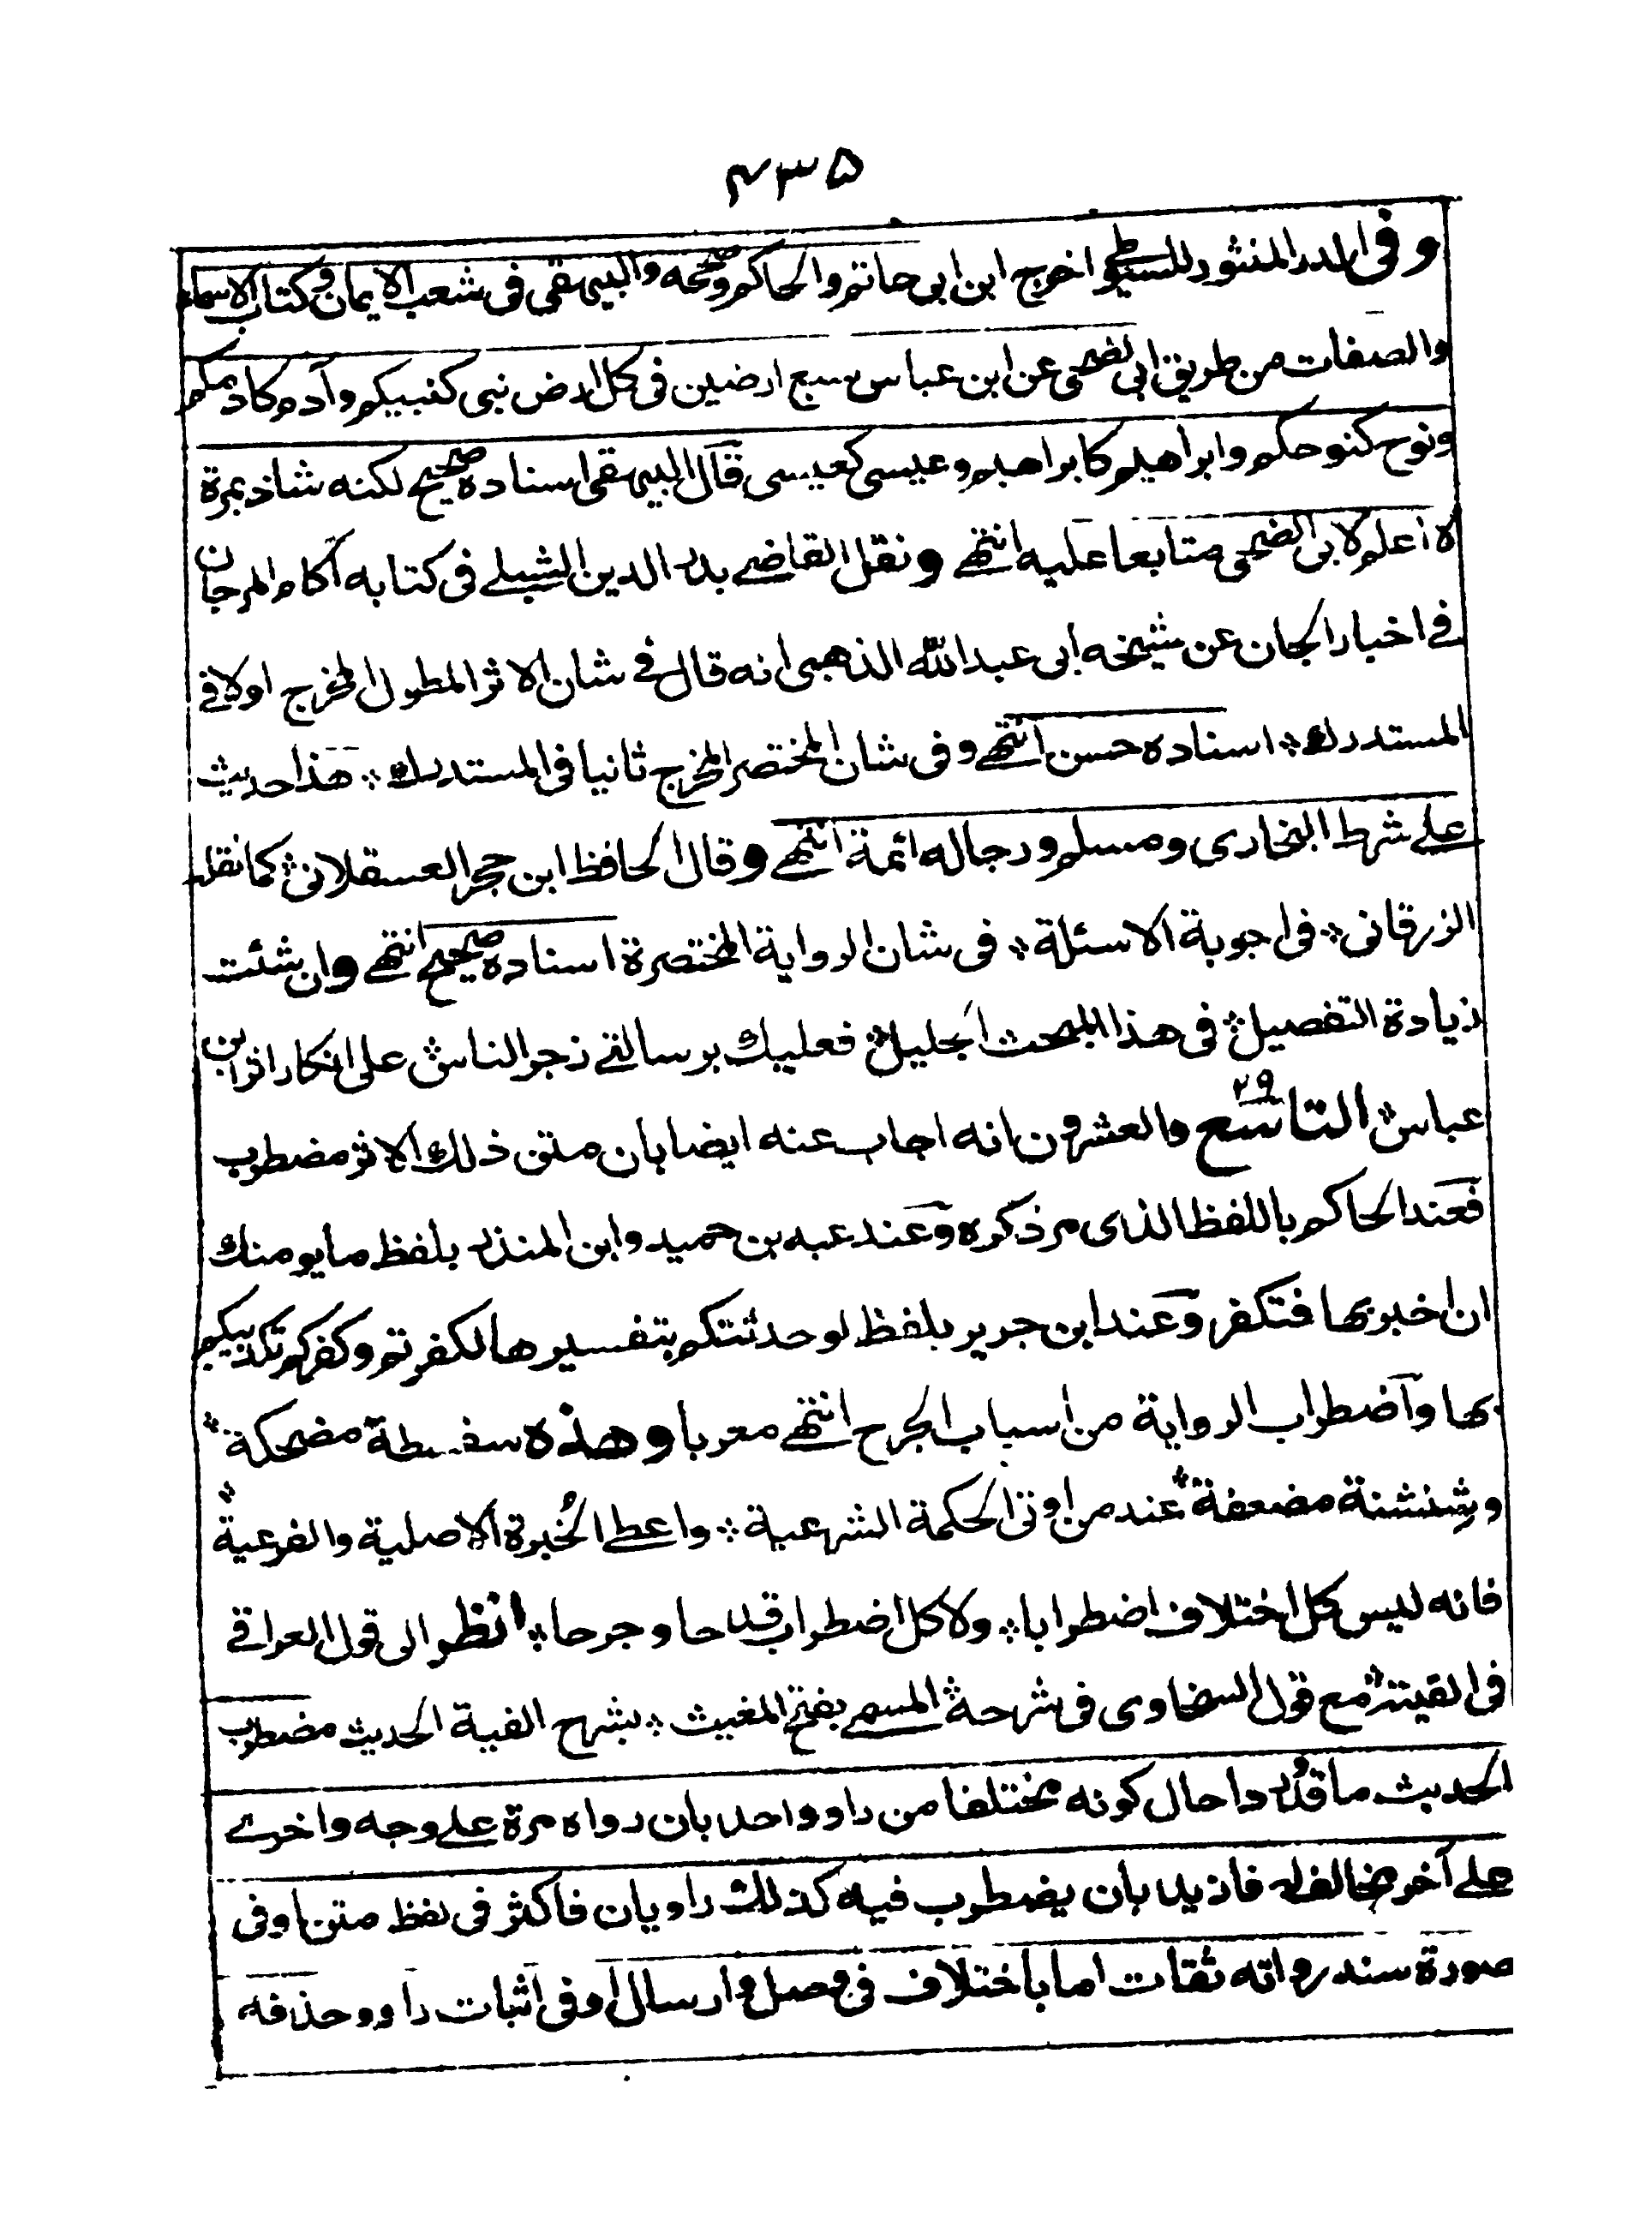 ۴۳۵
وفى الدر المنثور للسيوطي اخرج ابن ابى حاتم والحاكم وصححه والبيهقى فى شعب الايمان وكتاب الاسماء
والصفات من طريق ابى الضحى عن ابن عباس سبع ارضين فى كل ارض نبى كنبيكم وآدم كآدمكم
ونوح كنوحكم وابراهيم كابراهيم وعيسى كعيسى قال البيهقى اسناده صحيح لكنه شاذ بمرة
لا اعلم لابى الضحى متابعا عليه انتهى ونقل القاضے بدر الدين الشبلے فى كتابه آكام المرجان
فے اخبار الجان عن شيخه ابى عبد الله الذهبى انه قال فے شان الاثر المطول المخرج اولا فے
المستدرك اسناده حسن انتهى وفى شان المختصر المخرج ثانيا فى المستدرك هذا حديث
علے شرط البخارى ومسلم ورجاله ائمة انتهى وقال الحافظ ابن حجر العسقلانى كما نقله
الزرقانى فى اجوبة الاسئلة فى شان الرواية المختصرة اسناده صحيح انتهى وان شئت
زيادة التفصيل فى هذا المبحث الجليل فعليك برسالتے زجر الناس على انكار اثر ابن
عباس التاسع ۲۹ والعشرون انه اجاب عنه ايضا بان متن ذلك الاثر مضطرب
فعند الحاكم باللفظ الذى مر ذكره وعند عبد بن حميد وابن المنذر بلفظ ما يومنك
ان اخبر بها فتكفر وعند ابن جرير بلفظ لو حدثتكم بتفسيرها لكفرتم وكفركم تكذيبكم
بها واضطراب الرواية من اسباب الجرح انتهى معربا وهذه سفسطة مضحكة
وشنشنة مضعفة عند من اوتى الحكمة الشرعية واعطے الخُبرة الاصلية والفرعية
فانه ليس كل اختلاف اضطرابا ولا كل اضطراب قدحا وجرحا انظر الى قول العراقے
فى الفيته مع قول السخاوى فى شرحه المسمے بفتح المغيث بشرح الفية الحديث مضطرب
الحديث ما قد ردا حال كونه مختلفا من راو واحد بان رواه مرة علے وجه واخرے
علے آخر مخالف له فازيد بان يضطرب فيه كذلك راويان فاكثر فى لفظ متن اوفى
صورة سند رواته ثقات اما باختلاف فى وصل وارسال اوفى اثبات راو وحذفه